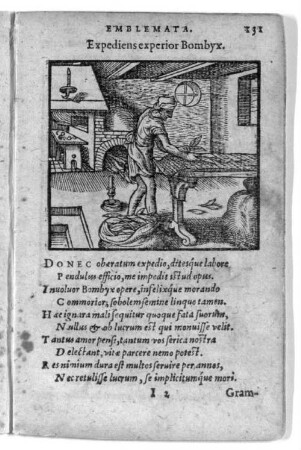 EMBLEMATA. 131
Expediens experior Bombyx.
DONEC oberatum expedio, ditesque labore
Pendulus efficio, me impedit istud opus.
Inuoluor Bombyx opere, infelixque morando
Commorior, sobolem semine linquo tamen.
Hac ignara mali sequitur quoque fata suorum,
Nullus & ob lucrum est qui monuisse velit.
Tantus amor pensi, tantum vos serica nostra
Delectant, vitæ parcere nemo potest.
Res nimium dura est multos seruire per annos,
Nec retulisse lucrum, se implicitumque mori.
I 2 Gram-